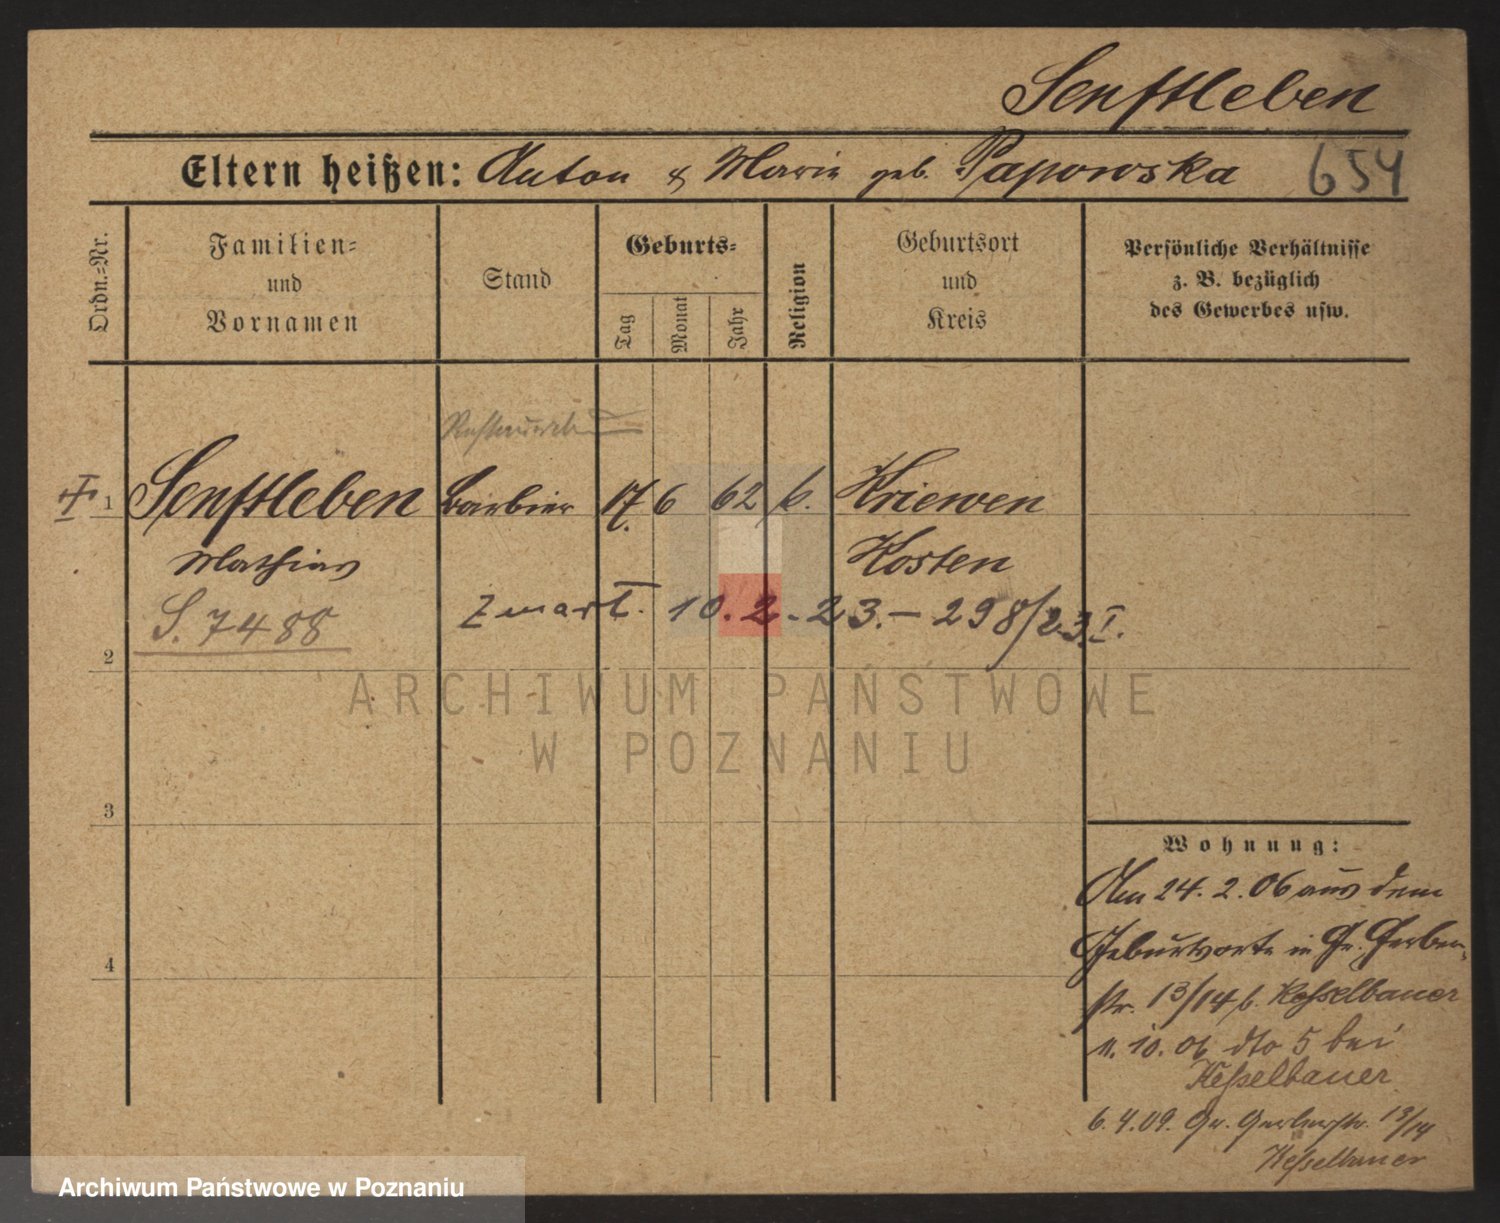 Senftleben
Eltern heißen: Anton & Marie geb. Papowska 654
Ordn.-Nr.
Familien-
und
Vornamen
Stand
Geburts-
Tag
Monat
Jahr
Religion
Geburtsort
und
Kreis
Persönliche Verhältnisse
z. B. bezüglich
des Gewerbes usw.
1 Senftleben Barbier 17. 6 62 k. Kriewen
Mathias Kosten
S. 7488 zmarł. 10.2.23.– 298/23.I.
2
ARCHIWUM PAŃSTWOWE
W POZNANIU
3
Wohnung:
Am 24. 2. 06 aus dem
Geburtsorte in Gr. Gerber-
str. 13/14 b. Kesselbauer
11. 10. 06 dto 5 bei
Keßelbauer
4
6. 4. 09. Gr. Gerberstr. 13/14
Keßelbauer
Archiwum Państwowe w Poznaniu